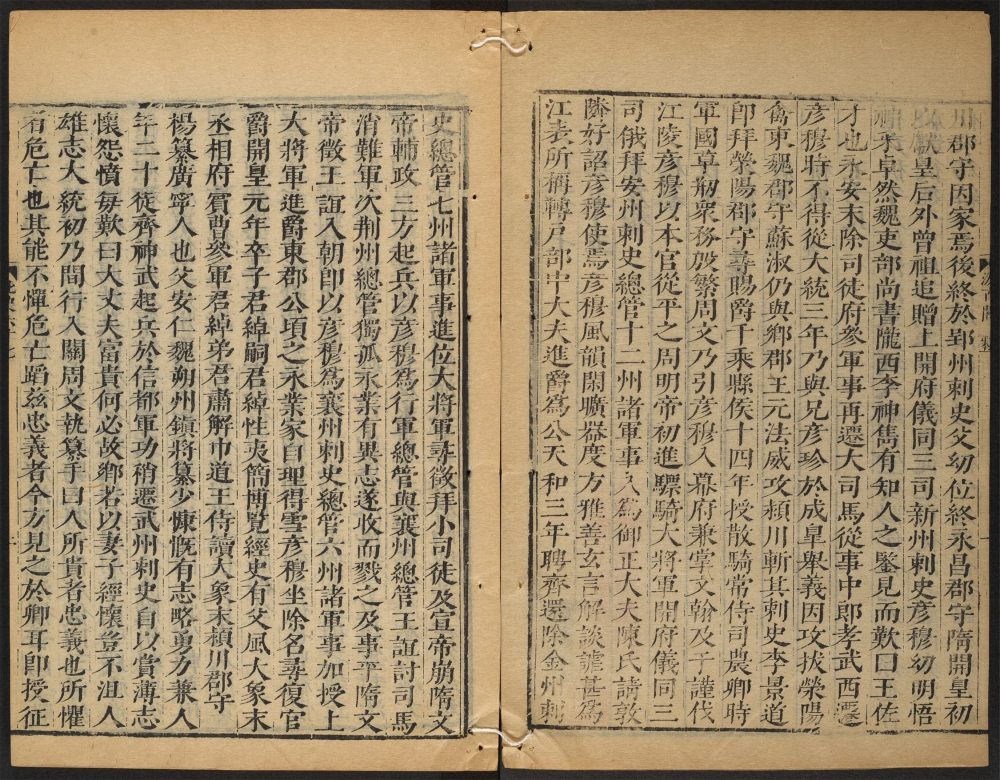 川郡守因家焉後終於郢州刺史父幼位終永昌郡守隋開皇初
獻皇后外曾祖追贈上開府儀同三司新州刺史彥穆幼明悟
神采卓然魏吏部尚書隴西李神雋有知人之鑒見而歎曰王佐
才也永安末除司徒府參軍事再遷大司馬從事中郎孝武西遷
彥穆時不得從大統三年乃與兄彥珍於成皐舉義因攻拔滎陽
禽東魏郡守蘇淑仍與鄉郡王元法威攻潁川斬其刺史李景道
卽拜滎陽郡守尋賜爵千乘縣侯十四年授散騎常侍司農卿時
軍國草刱衆務殷繁周文乃引彥穆入幕府兼掌文翰及于謹伐
江陵彥穆以本官從平之周明帝初進驃騎大將軍開府儀同三
司俄拜安州刺史總管十二州諸軍事入爲御正大夫陳氏請敦
隣好詔彥穆使焉彥穆風韻閑曠器度方雅善玄言解談謔甚爲
江表所稱轉戸部中大夫進爵爲公天和三年聘齊還除金州刺
史總管七州諸軍事進位大將軍尋徵拜小司徒及宣帝崩隋文
帝輔政三方起兵以彥穆爲行軍總管與襄州總管王誼討司馬
消難軍次荆州總管獨孤永業有異志遂收而戮之及事平隋文
帝徵王誼入朝卽以彥穆爲襄州刺史總管六州諸軍事加授上
大將軍進爵東郡公頃之永業家自理得雪彥穆坐除名尋復官
爵開皇元年卒子君綽嗣君綽性夷簡博覽經史有父風大象末
丞相府賓曹參軍君綽弟君肅解巾道王侍讀大象末潁川郡守
楊纂廣寧人也父安仁魏朔州鎭將纂少慷慨有志略勇力兼人
年二十從齊神武起兵於信都軍功稍遷武州刺史自以賞薄志
懷怨憤每歎曰大丈夫富貴何必故鄉若以妻子經懷豈不沮人
雄志大統初乃間行入關周文執纂手曰人所貴者忠義也所懼
有危亡也其能不憚危亡蹈兹忠義者今方見之於卿耳卽授征